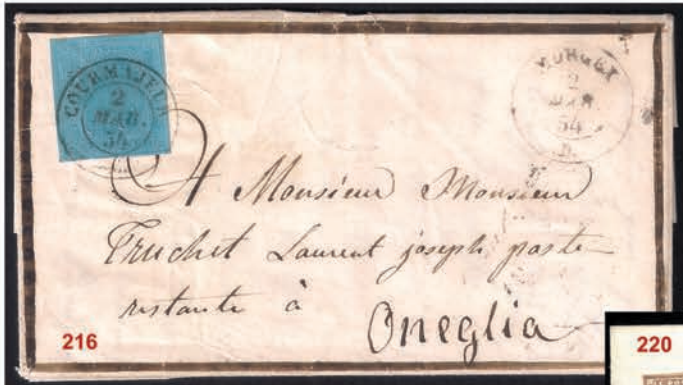 COURMAJEUR
2
MAR.
54
MORGEX
2
MAR.
54
A Monsieur Monsieur
Truchet Laurent joseph poste
restante à
Oneglia
216
220